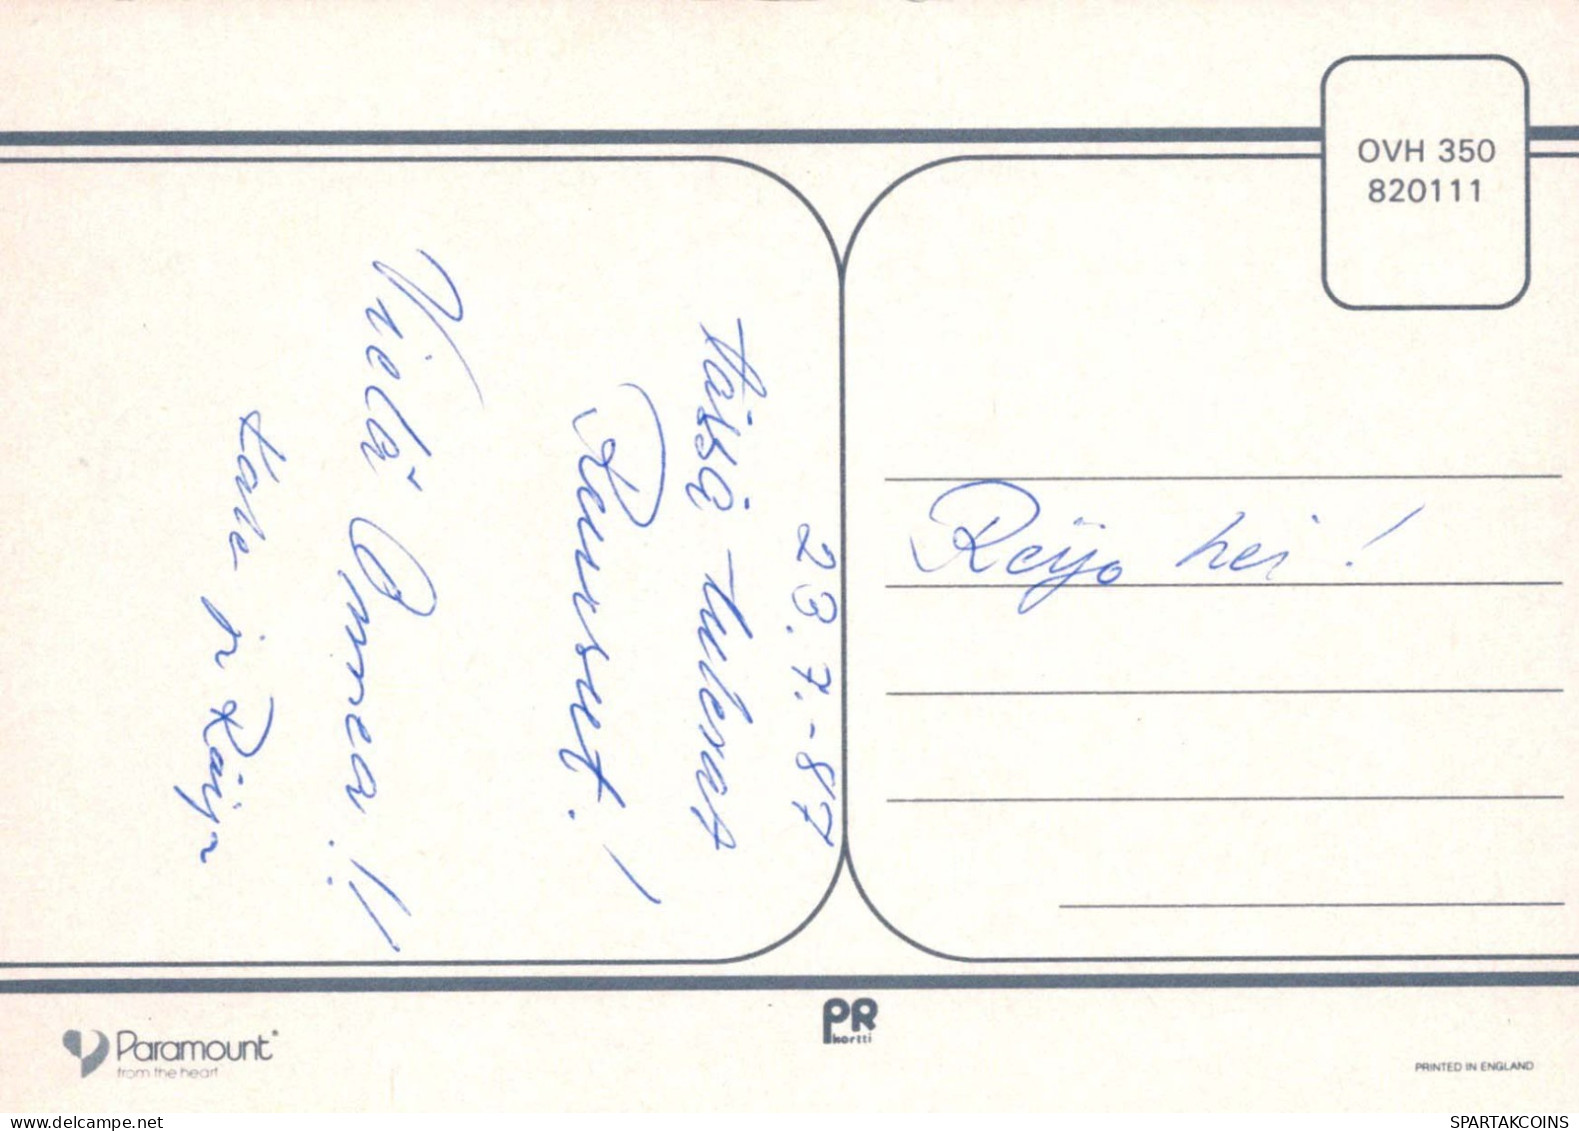 OVH 350
820111
Reijo hei!
23.7.-87
tässä tulevat
Reunset!
Vielä Onnea!!
ja Raija
Paramount
from the heart
PR
kortti
PRINTED IN ENGLAND
www.delcampe.net
SPARTAKCOINS